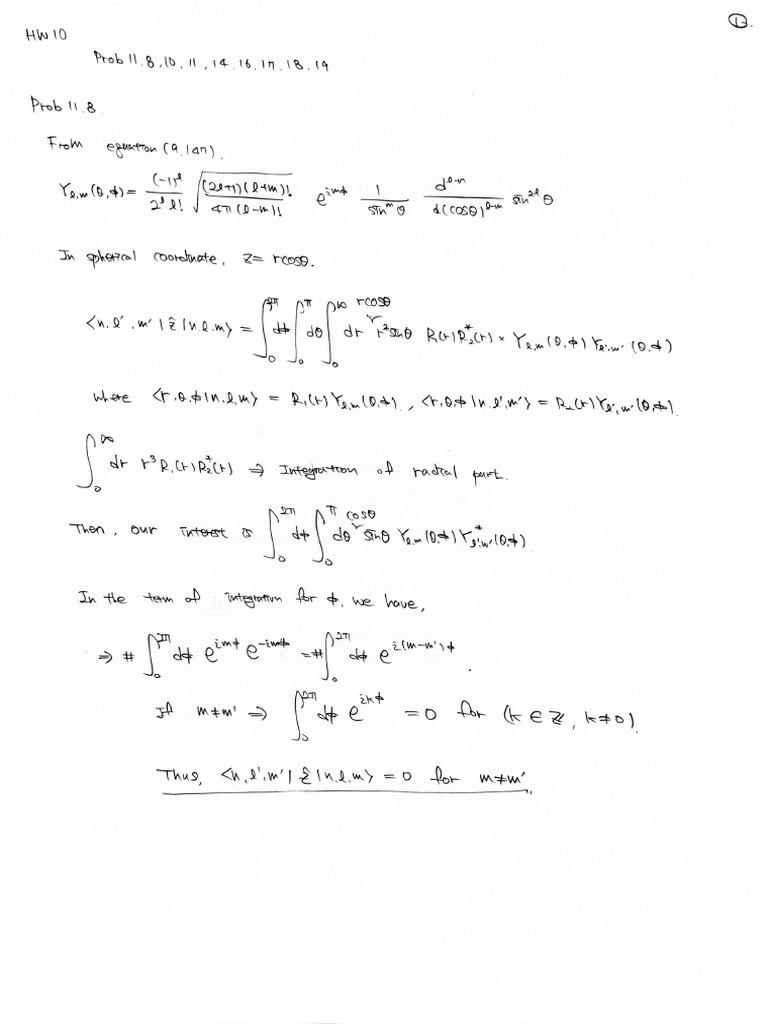 1.
HW10
Prob 11.8, 10, 11, 14, 16, 17, 18, 19
Prob 11.8
From equation (9.147).
Y_{l,m}(θ,φ) = \frac{(-1)^l}{2^l l!} \sqrt{\frac{(2l+1)(l+m)!}{4π(l-m)!}} e^{imφ} \frac{1}{sin^m θ} \frac{d^{l-m}}{d(cosθ)^{l-m}} sin^{2l} θ
In spherical coordinate, z = rcosθ.
<n,l',m'|ẑ|n,l,m> = ∫_0^{2π} dφ ∫_0^π dθ ∫_0^∞ dr rcosθ r² sinθ R_1(r) R_2^*(r) × Y_{l,m}(θ,φ) Y_{l',m'}(θ,φ)
where <r,θ,φ|n,l,m> = R_1(r) Y_{l,m}(θ,φ), <r,θ,φ|n,l',m'> = R_2(r) Y_{l',m'}(θ,φ)
∫_0^∞ dr r³ R_1(r) R_2^*(r) ⇒ Integration of radial part.
Then, our interest is ∫_0^{2π} dφ ∫_0^π dθ cosθ sinθ Y_{l,m}(θ,φ) Y_{l',m'}^*(θ,φ)
In the term of integration for φ, we have,
⇒ # ∫_0^{2π} dφ e^{imφ} e^{-im'φ} = # ∫_0^{2π} dφ e^{i(m-m')φ}.
If m≠m' ⇒ ∫_0^{2π} dφ e^{ikφ} = 0 for (k ∈ ℤ, k≠0)
Thus, <n,l',m'|ẑ|n,l,m> = 0 for m≠m'.